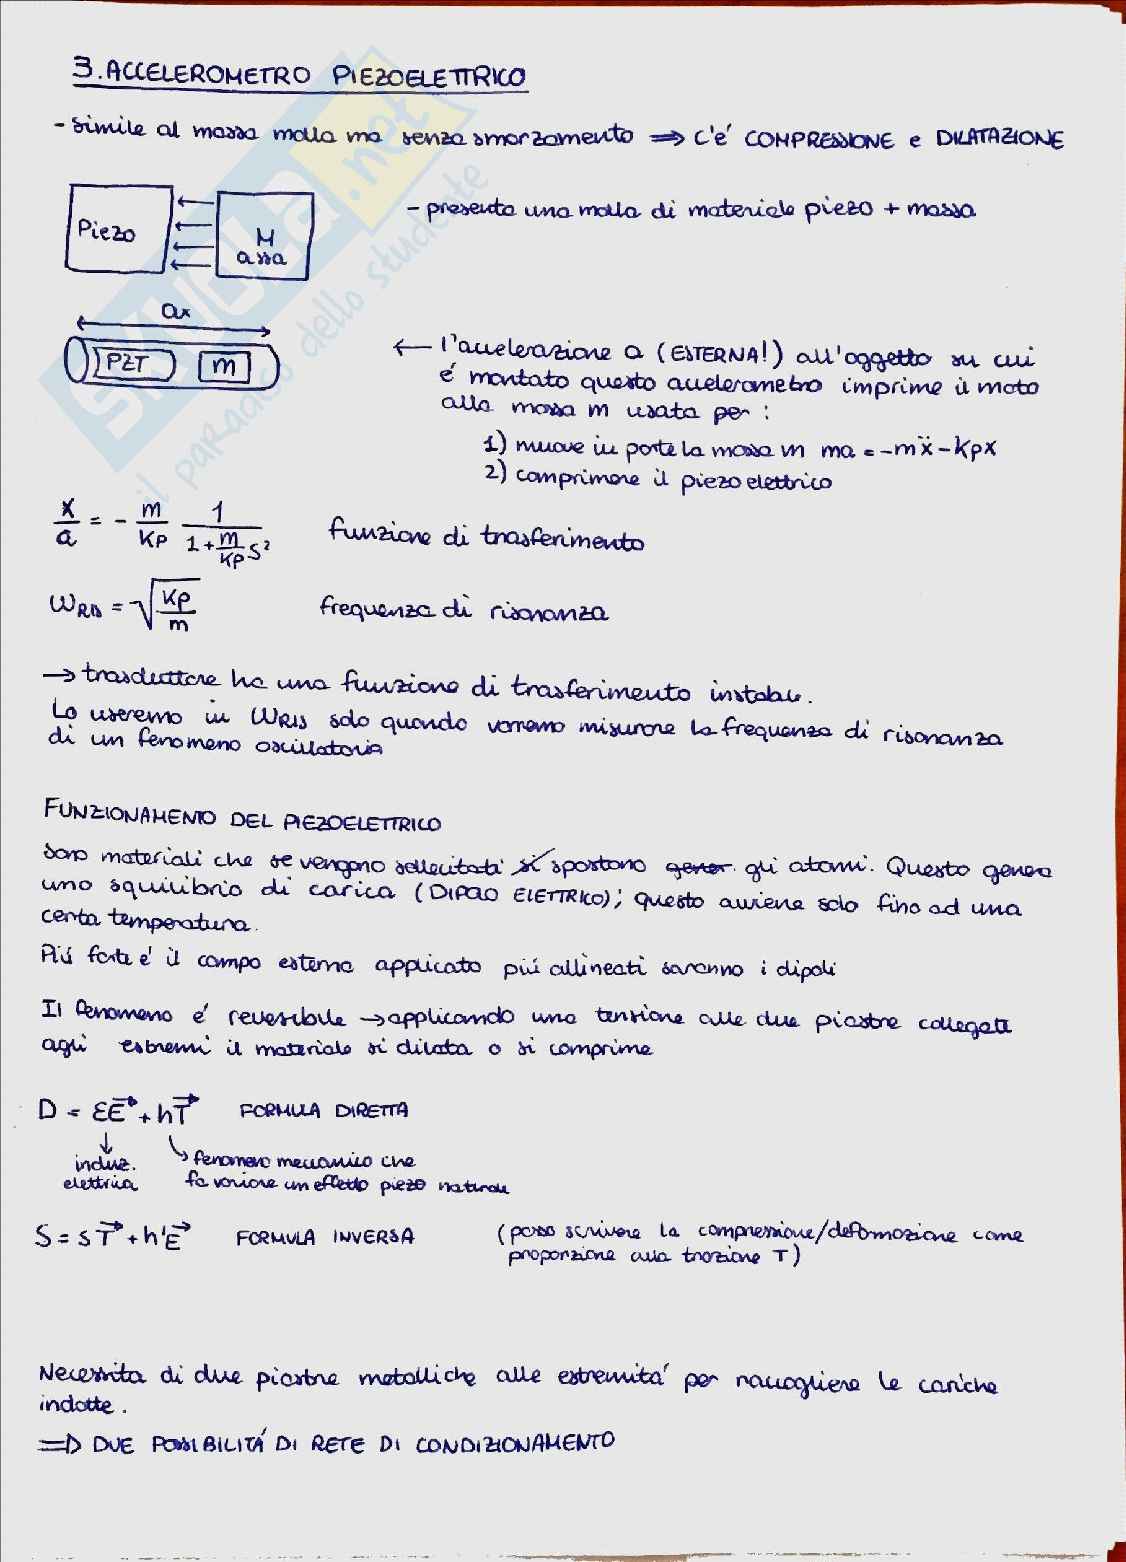 3. ACCELEROMETRO PIEZOELETTRICO
- simile al massa molla ma senza smorzamento ⇒ c'é COMPRESSIONE e DILATAZIONE
- presenta una molla di materiale piezo + massa
Piezo
M
assa
ax
PZT
m
← l'accelerazione a (ESTERNA!) all'oggetto su cui
é montato questo accelerometro imprime il moto
alla massa m usata per :
1) muove in parte la massa m ma = -mẍ - kpx
2) comprimere il piezoelettrico
x/a = - m/Kp 1/(1 + m/Kp s²) funzione di trasferimento
WRIS = √(Kp/m) frequenza di risonanza
→ trasduttore ha una funzione di trasferimento instabile.
Lo useremo in WRIS solo quando vorremo misurare la frequenza di risonanza
di un fenomeno oscillatorio
FUNZIONAMENTO DEL PIEZOELETTRICO
Sono materiali che se vengono sollecitati si spostano gener. gli atomi. Questo genera
uno squilibrio di carica (DIPOLO ELETTRICO); questo avviene solo fino ad una
certa temperatura.
Piú forte é il campo esterno applicato piú allineati saranno i dipoli
Il fenomeno é reversibile → applicando una tensione alle due piastre collegate
agli estremi il materiale si dilata o si comprime
D = εE + hT FORMULA DIRETTA
induz.
elettrica
fenomeno meccanico che
fa variare un effetto piezo naturale
S = sT + h'E FORMULA INVERSA (posso scrivere la compressione/deformazione come
proporzione alla trazione T)
Necessita di due piastre metalliche alle estremitá per raccogliere le cariche
indotte.
⇒ DUE POSSIBILITÁ DI RETE DI CONDIZIONAMENTO
SKUOLA.net
il paradiso dello studente